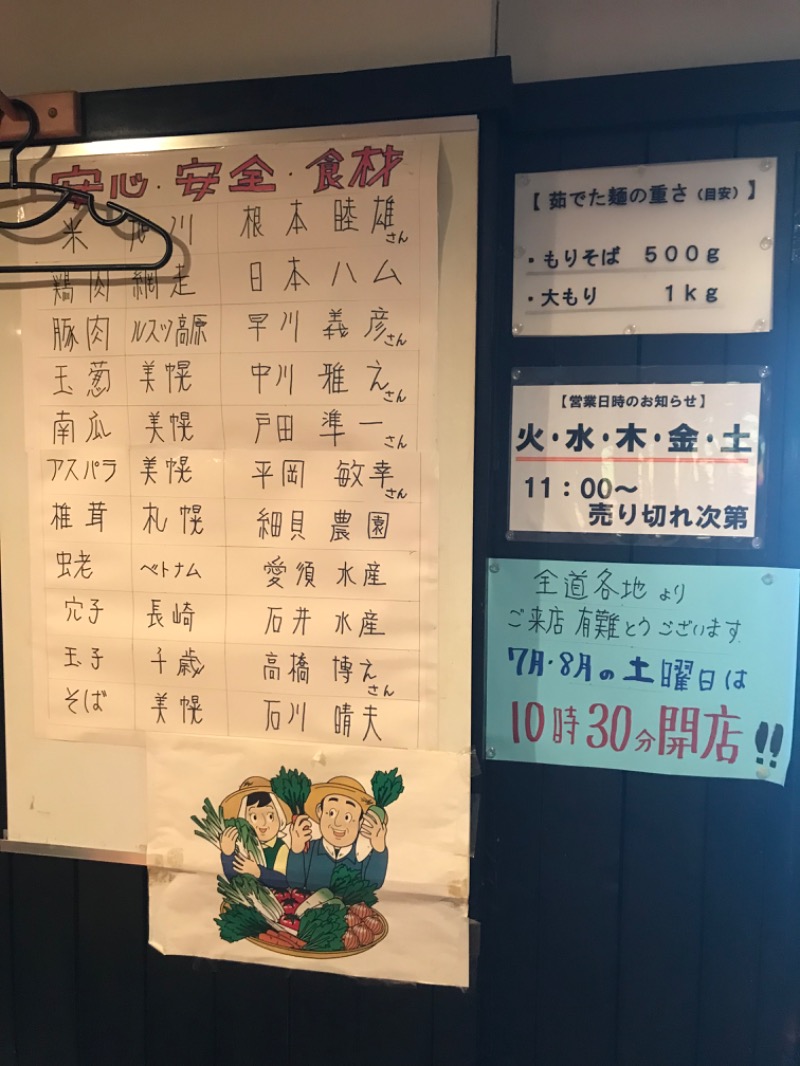 安心・安全・食材
米 旭川 根本 睦雄さん
鶏肉 網走 日本ハム
豚肉 ルスツ高原 早川 義彦さん
玉葱 美幌 中川 雅えさん
南瓜 美幌 戸田 準一さん
アスパラ 美幌 平岡 敏幸さん
椎茸 札幌 細貝 農園
蛯 ベトナム 愛須 水産
穴子 長崎 石井 水産
玉子 千歳 高橋 博えさん
そば 美幌 石川 晴夫
【 茹でた麺の重さ（目安）】
・もりそば ５００ｇ
・大もり １ｋｇ
【営業日時のお知らせ】
火・水・木・金・土
11：00〜
売り切れ次第
全道各地より
ご来店 有難とうございます
7月・8月の土曜日は
10時30分開店!!